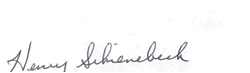 Henry Schienebeck